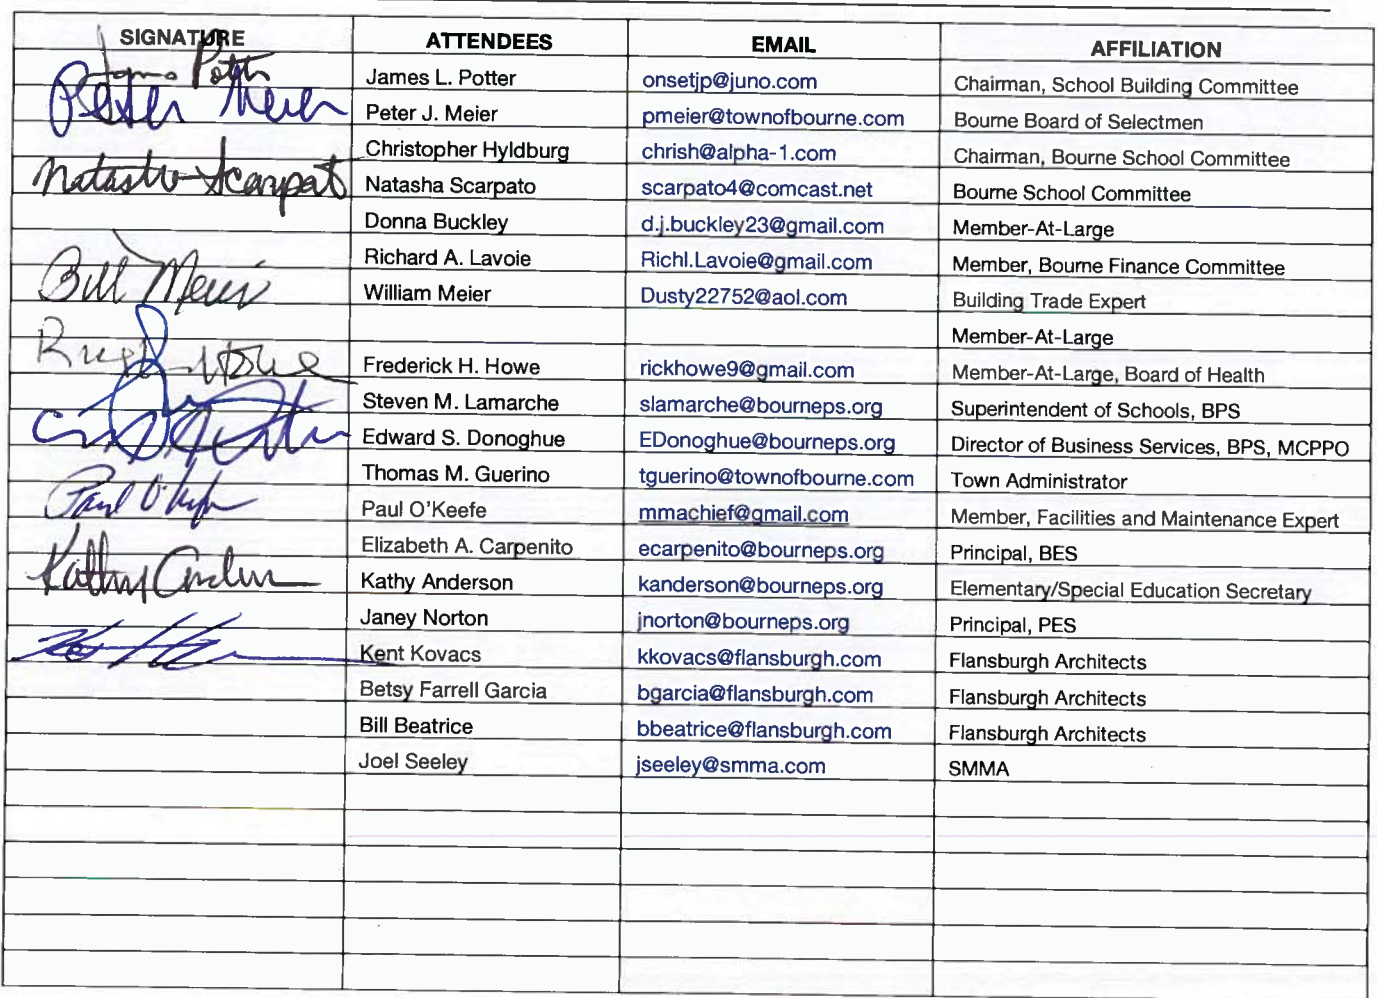 SIGNATURE ATTENDEES EMAIL AFFILIATION
James Potter James L. Potter onsetjp@juno.com Chairman, School Building Committee
Peter Meier Peter J. Meier pmeier@townofbourne.com Bourne Board of Selectmen
Christopher Hyldburg chrish@alpha-1.com Chairman, Bourne School Committee
Natasha Scarpato Natasha Scarpato scarpato4@comcast.net Bourne School Committee
Donna Buckley d.j.buckley23@gmail.com Member-At-Large
Richard A. Lavoie Richl.Lavoie@gmail.com Member, Bourne Finance Committee
Bill Meier William Meier Dusty22752@aol.com Building Trade Expert
Member-At-Large
Howe Frederick H. Howe rickhowe9@gmail.com Member-At-Large, Board of Health
Steven M. Lamarche slamarche@bourneps.org Superintendent of Schools, BPS
Edward S. Donoghue EDonoghue@bourneps.org Director of Business Services, BPS, MCPPO
Thomas M. Guerino tguerino@townofbourne.com Town Administrator
Paul O'Keefe Paul O'Keefe mmachief@gmail.com Member, Facilities and Maintenance Expert
Elizabeth A. Carpenito ecarpenito@bourneps.org Principal, BES
Kathy Anderson Kathy Anderson kanderson@bourneps.org Elementary/Special Education Secretary
Janey Norton jnorton@bourneps.org Principal, PES
Kent Kovacs kkovacs@flansburgh.com Flansburgh Architects
Betsy Farrell Garcia bgarcia@flansburgh.com Flansburgh Architects
Bill Beatrice bbeatrice@flansburgh.com Flansburgh Architects
Joel Seeley jseeley@smma.com SMMA